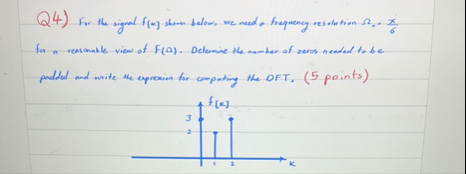 Q4) For the signal f[k] shown below, we need a frequency resolution Ω₀ = π/6
for a reasonable view of F(Ω). Determine the number of zeros needed to be
padded and write the expression for computing the DFT. (5 points)
f[k]
3
2
1 2 K